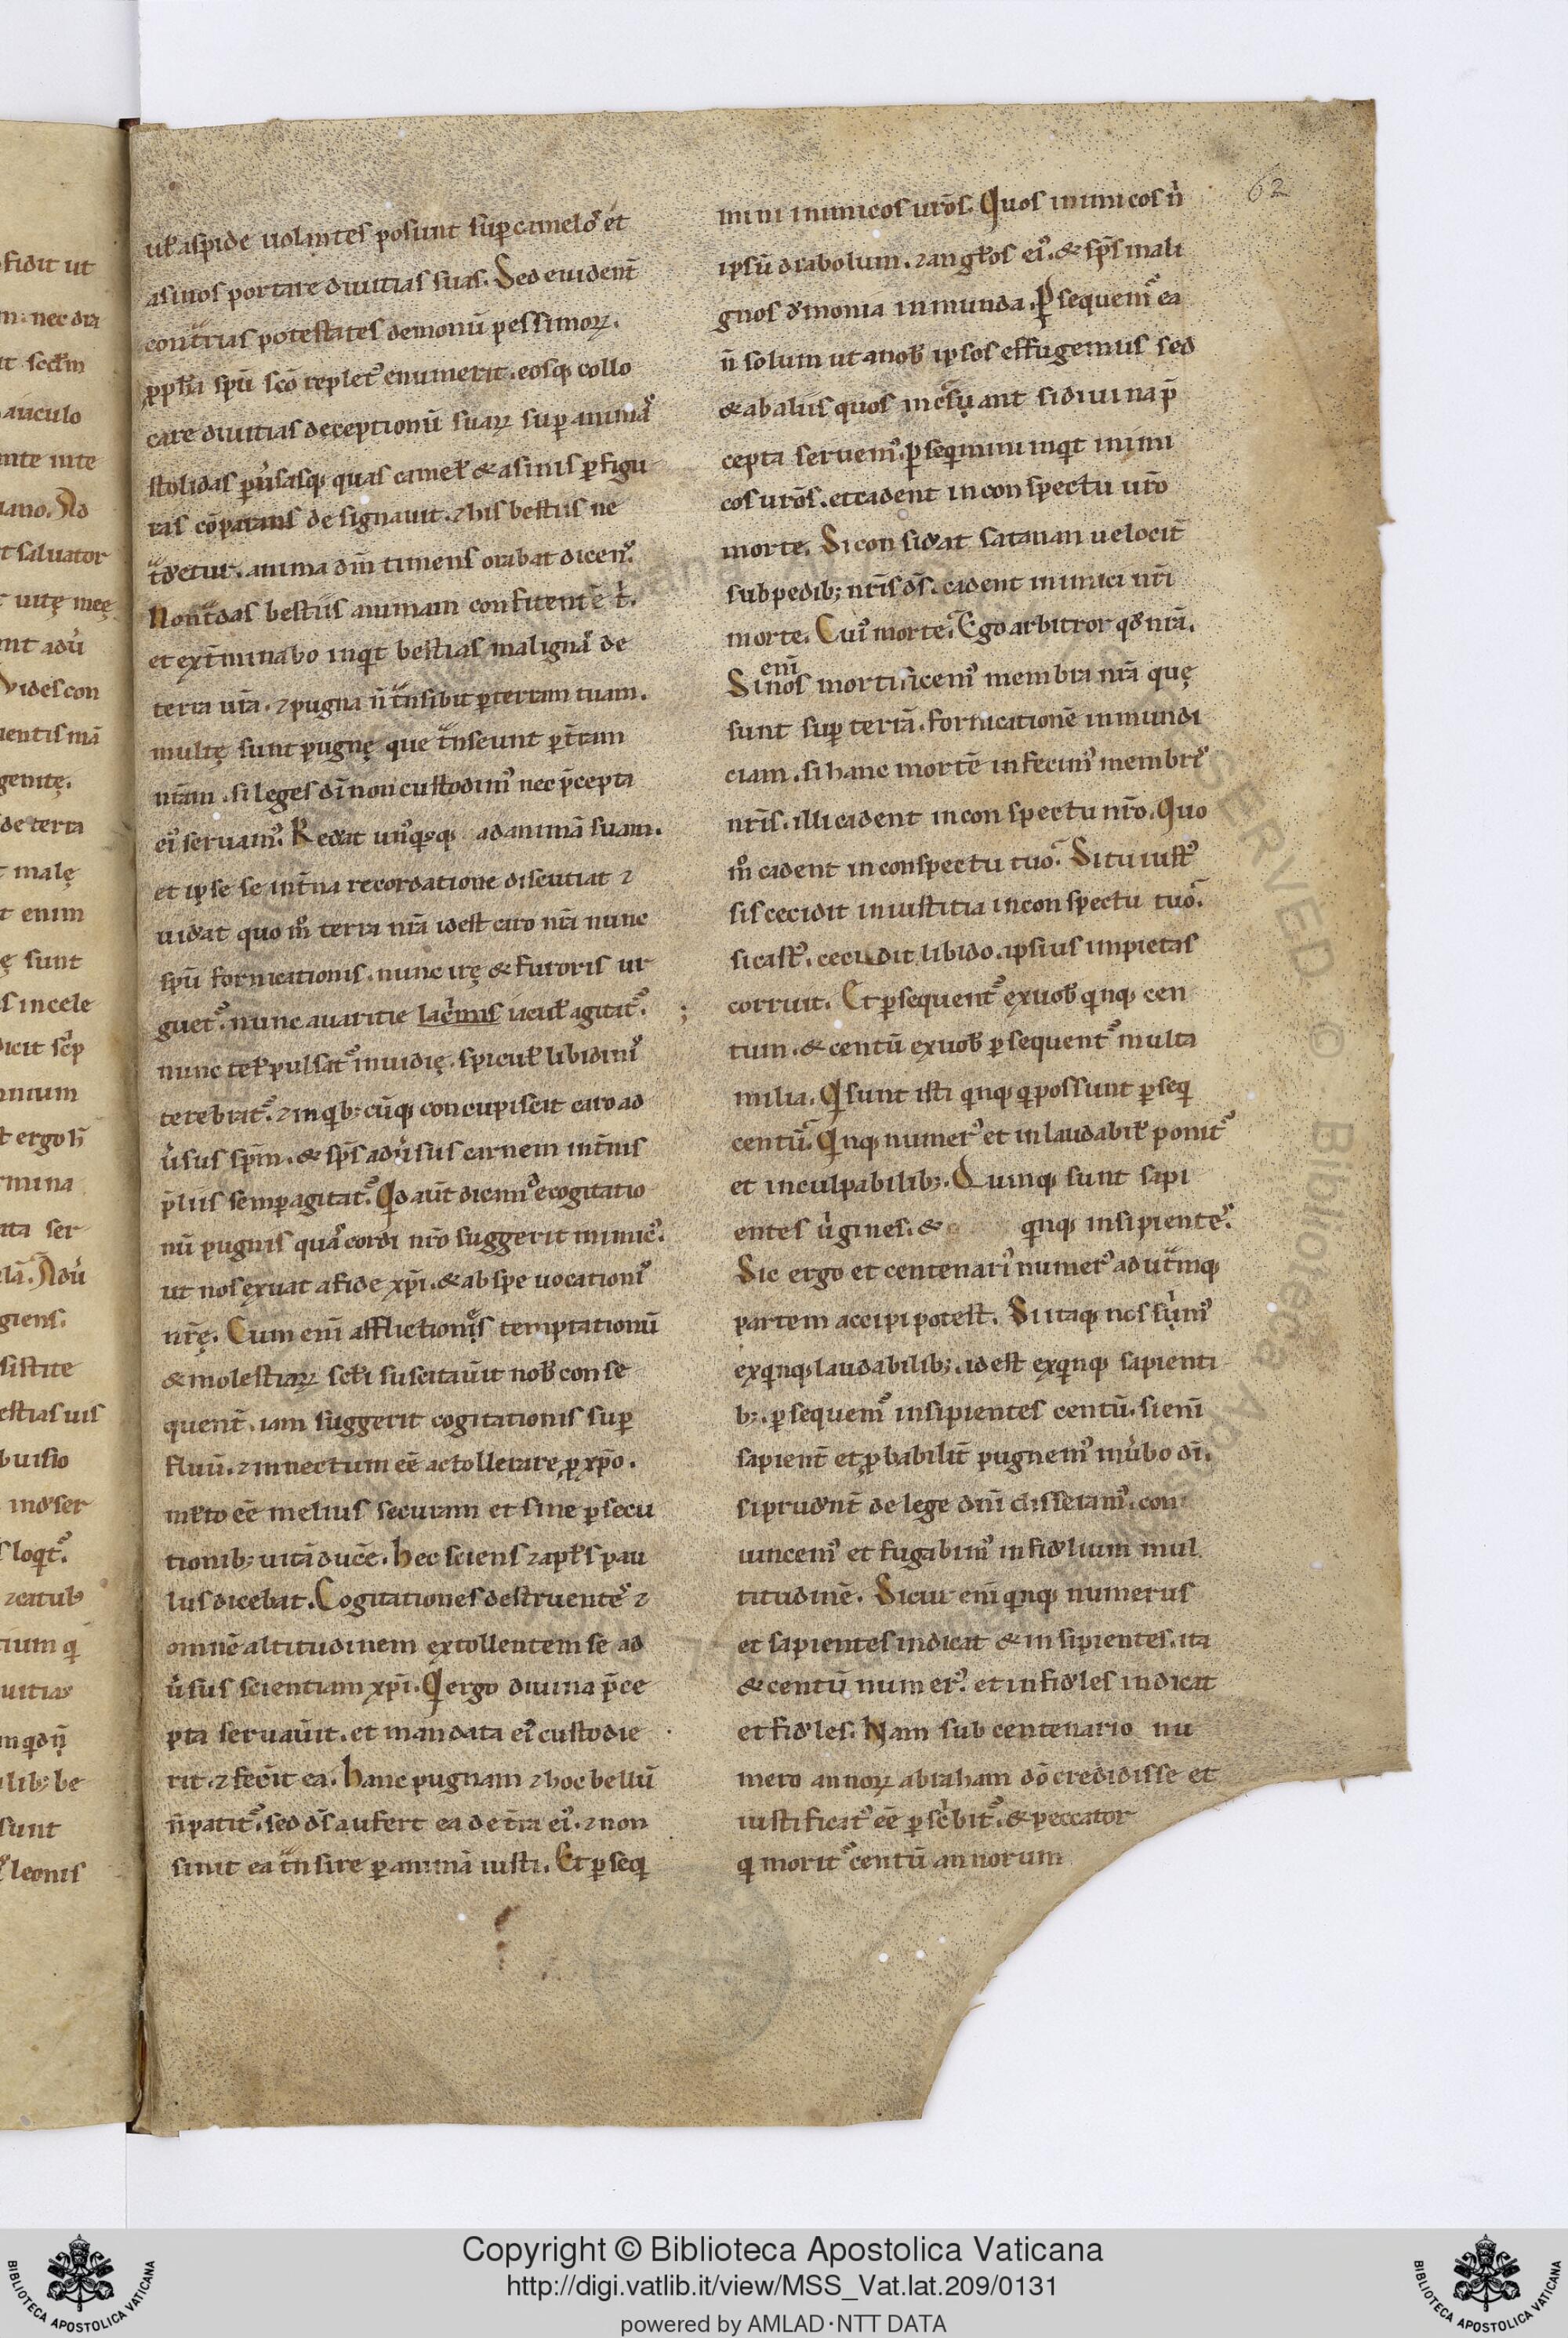 62
ul̃ aspide uolantes posunt sup camelos et
asinos portare diuitias suas. Sed euident̃
contrias potestates demonũ pessimoꝝ.
ꝓpha spũ sc̃o replet᾽ enumerit. eosq; collo
care diuitias deceptionũ suaꝝ sup animas
stolidas ꝑusasq; quas camel̃ & asinis ꝑ figu
ras cõparans designauit. ⁊ his bestiis ne
tdetur. anima dñi timens orabat dicens.
Non tdas bestiis animam confitentẽ t̃.
et ext̃minabo inqt bestias malignas de
terra ur̃a. ⁊ pugna ñ tnsibit ꝑ terram tuam.
multę sunt pugnę que tnseunt ꝑ t̃ram
nr̃am. si leges dĩ non custodim᾽ nec p̃cepta
ei᾽ seruam᾽. Redeat un᾽q;q; ad animã suam.
et ipse se int̃na recordatione discutiat ⁊
uideat quo m̊ terra nr̃a idest caro nr̃a nunc
spũ fornicationis. nunc irę & furoris ur
guet᾽. nunc auaritie lac̃mis iacul̃ agitat᾽.
nunc tel̃ pulsat᾽ inuidię. spicul̃ libidinis
terebrat᾽. ⁊ in qb; cũq; concupiscit caro ad
ũsus spm̃. & sps̃ adũsus carnem int̃nis
p̃liis semp agitat᾽. Qd aut̃ dicam᾽ de cogitatio
nũ pugnis quas cordi nr̃o suggerit inimic᾽.
ut nos exuat a fide xp̃i. & ab spe uocationis
nr̃ę. Cum enĩ afflictionis temptationũ
& molestiaꝝ scl̃i suscitaũit nob̃ conse
quent̃. iam suggerit cogitationis sup
fluũ. ⁊ innectum eẽ ac tollerare ꝓ xp̃o.
ml̃to eẽ melius securam et sine ꝑsecu
tionib; uitã ducẽ. hec sciens ⁊ apl̃s pau
lus dicebat. Cogitationes destruentes ⁊
omnẽ altitudinem extollentem se ad
ũsus scientiam xp̃i. Q ergo diuina p̃ce
pta seruaũit. et mandata ei᾽ custodie
rit. ⁊ fecit ea. hanc pugnam ⁊ hoc bellũ
ñ patit᾽. sed ds̃ aufert ea de t̃ra ei᾽. ⁊ non
sinit ea tnsire ꝑ animã iusti. Et ꝑseq
mini inimicos uros̃. Quos inimicos ñ
ipsũ diabolum. ⁊ angl̃os ei᾽. & sps̃ mali
gnos demonia inmunda. Ꝑsequem᾽ ea
ñ solum ut a nob̃ ipsos effugemus sed
& ab aliis quos incursuant si diuina p̃
cepta seruem᾽. ꝑseqmini inqt inimi
cos uros̃. et cadent in conspectu ur̃o
morte. Si consideat satanan uelocit̃
sub pedib; nr̃is ds̃. cadent inimici nr̃i
morte. Cui᾽ morte. Ego arbitror qd nr̃a.
Si enĩ nos mortificem᾽ membra nr̃a quę
sunt sup terrã. fornicationẽ inmundi
ciam. si hanc mortẽ infecim᾽ membris
nr̃is. illi cadent in conspectu nr̃o. Quo
m̊ cadent in conspectu tuo. Si tu iust᾽
sis cecidit iniustitia in conspectu tuo.
si cast᾽. cecidit libido. si pius impietas
corruit. Et ꝑsequent᾽ ex uob̃ qnq; cen
tum. & centũ ex uob̃ ꝑsequent᾽ multa
milia. Q sunt isti qnq; q possunt ꝑseq
centũ. Qnq; numer᾽ et in laudabil̃ ponit᾽
et inculpabilib;. Quinq; sunt sapi
entes ũgines. & qnq; insipientes.
Sic ergo et centenari᾽ numer᾽ ad utmq;
partem accipi potest. Si itaq; nos sum᾽
ex qnq; laudabilib;. idest ex qnq; sapienti
b;. ꝑsequem᾽ insipientes centũ. si enĩ
sapient̃ et ꝓbabilit̃ pugnem᾽ in ũbo dĩ.
si prudent̃ de lege dñi disseram᾽. con
uincem᾽ et fugabim᾽ infidelium mul
titudinẽ. Sicut enĩ qnq; numerus
et sapientes indicat & insipientes. ita
& centũ numer᾽. et infideles indicat
et fideles. Nam sub centenario nu
mero annoꝝ abraham dõ credidisse et
iustificat᾽ eẽ ꝑscbit᾽. & peccator
q morit᾽ centũ annorum
Copyright © Biblioteca Apostolica Vaticana
http://digi.vatlib.it/view/MSS_Vat.lat.209/0131
powered by AMLAD·NTT DATA
BIBLIOTECA APOSTOLICA VATICANA
BIBLIOTECA APOSTOLICA VATICANA